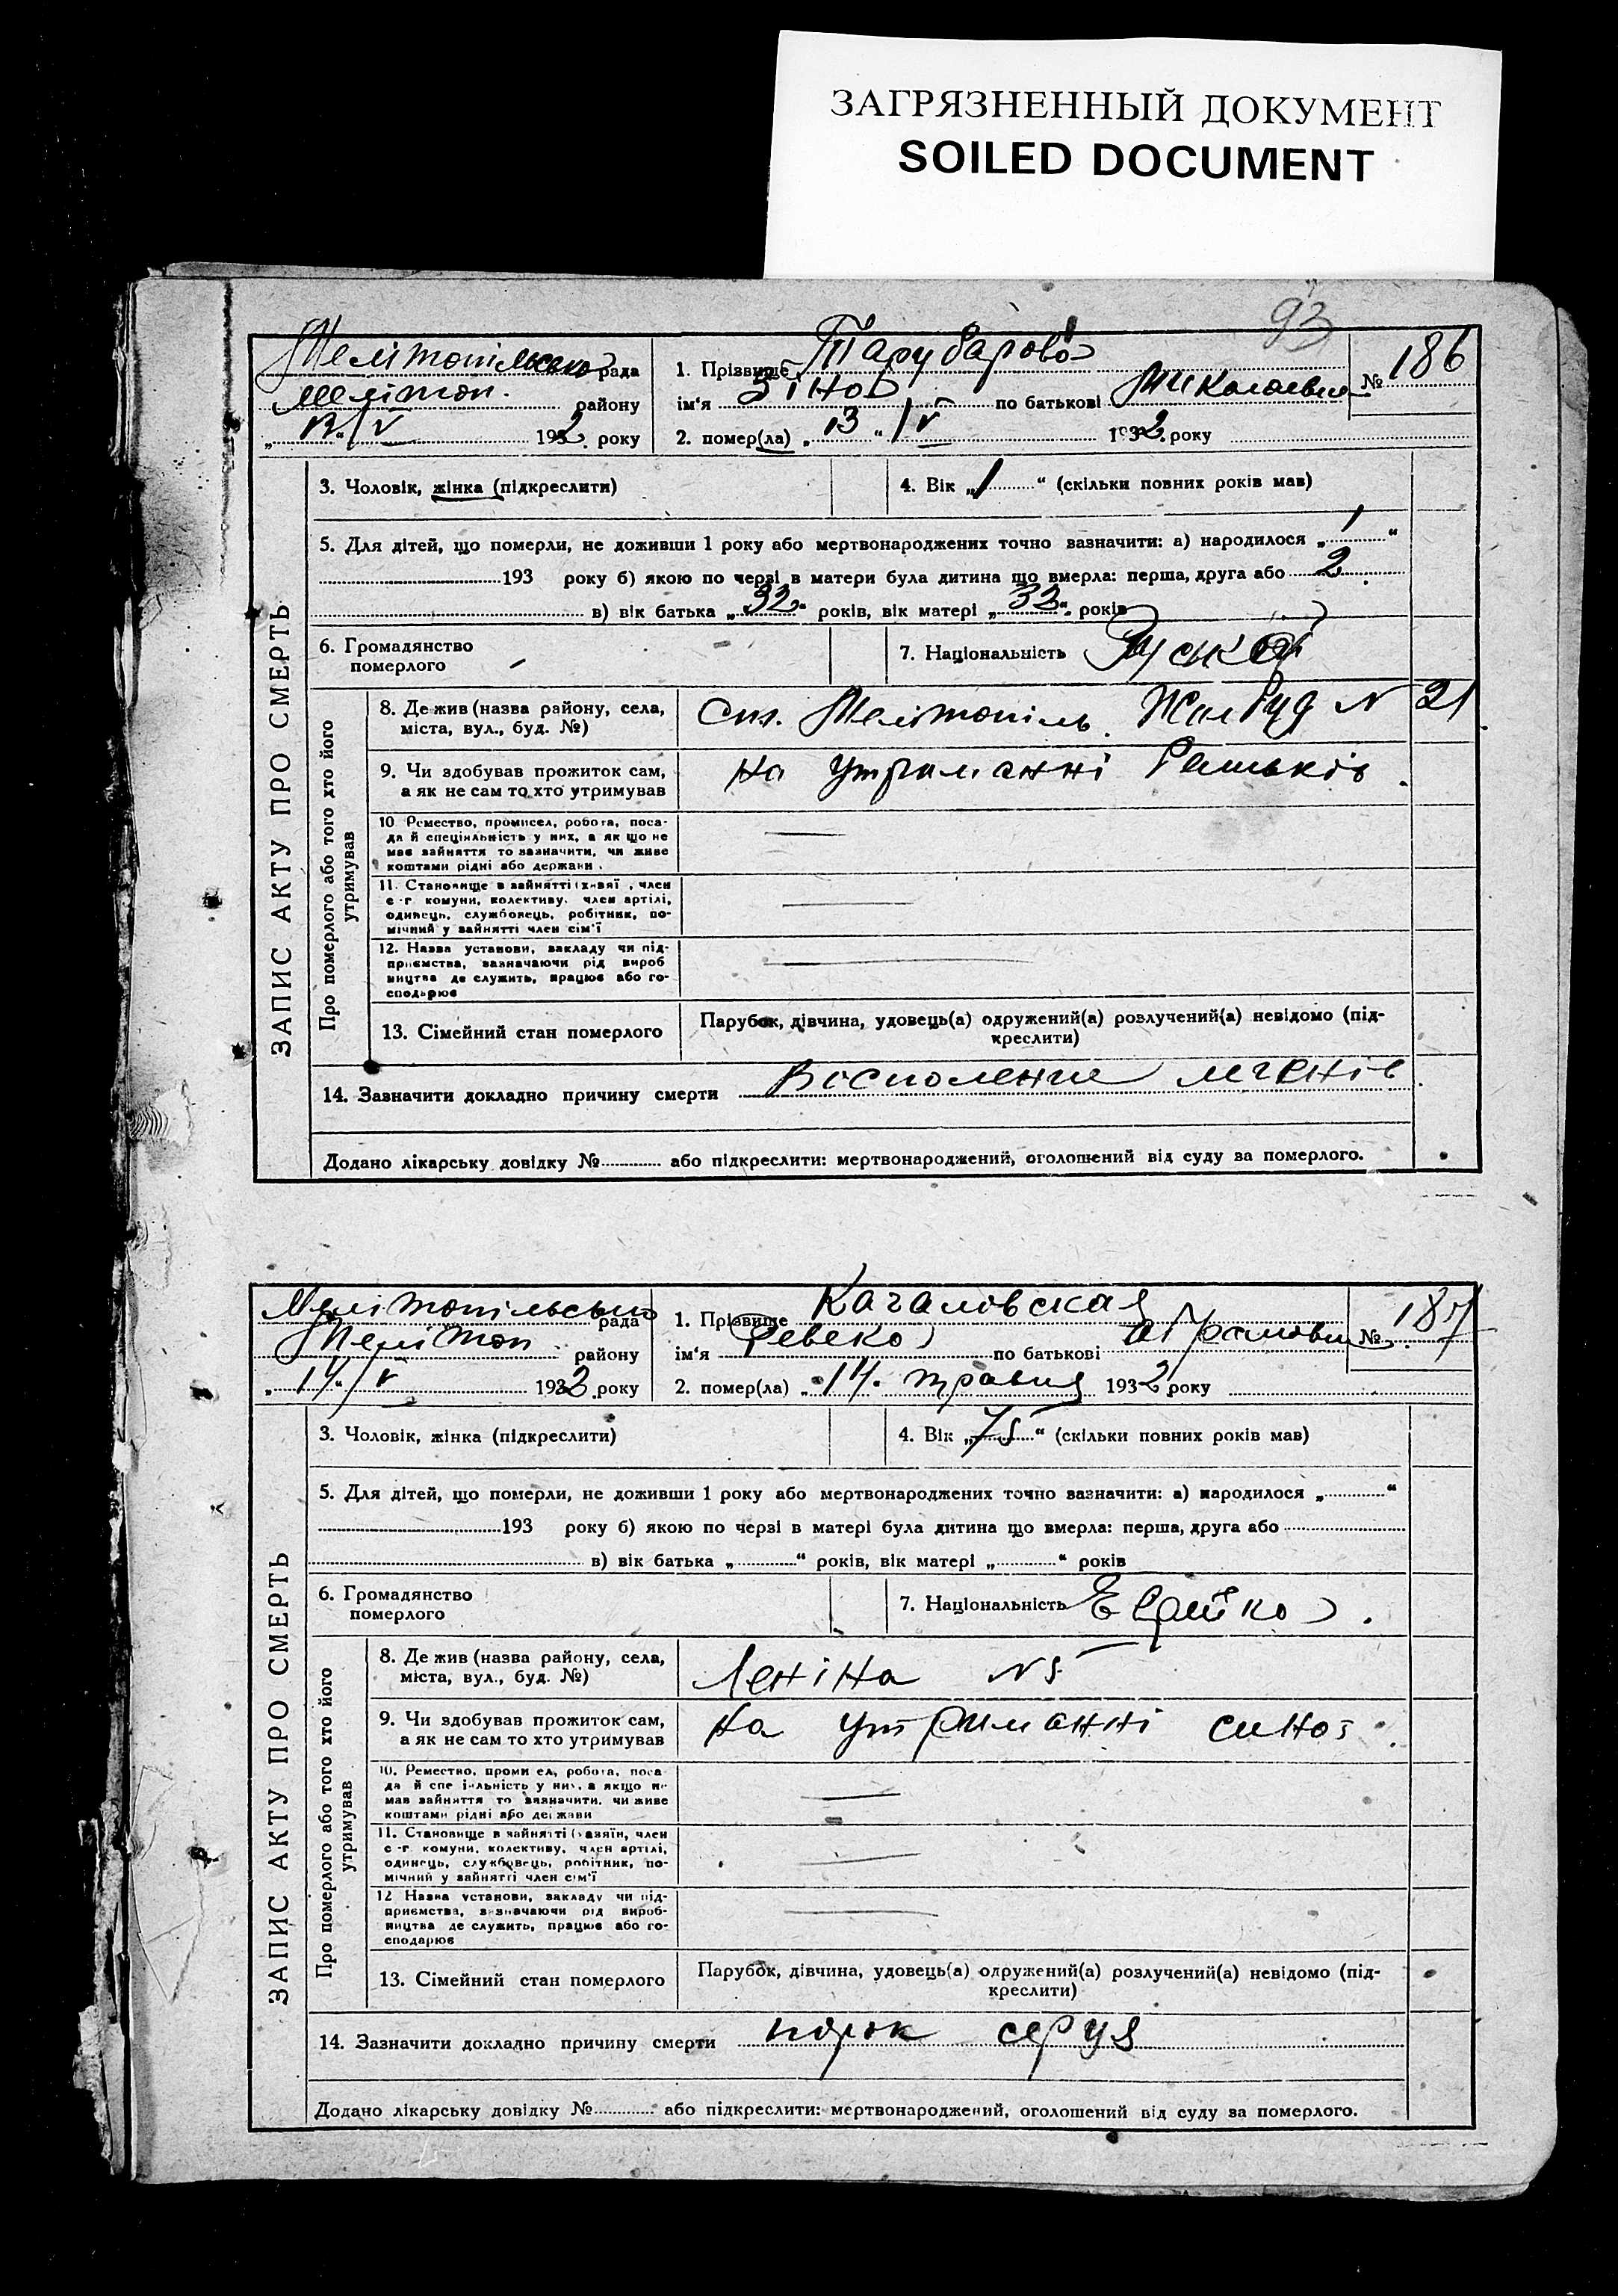 ЗАГРЯЗНЕННЫЙ ДОКУМЕНТ
SOILED DOCUMENT
93
Мелітопільсько рада
Мелітоп. району
1932 року
1. Прізвище Тарубарова
ім'я Зіна по батькові Миколаевна
№ 186
2. помер(ла) „13“ / V 1932 року
ЗАПИС АКТУ ПРО СМЕРТЬ
3. Чоловік, жінка (підкреслити)
4. Вік „1“ (скільки повних років мав)
5. Для дітей, що померли, не доживши 1 року або мертвонароджених точно вазначити: а) народилося „1“
193 року б) якою по черзі в матери була дитина що вмерла: перша, друга або 2
в) вік батька „32“ років, вік матері „32“ років
6. Громадянство
померлого
7. Національність Руская
Про померлого або того хто його
утримував
8. Де жив (назва району, села,
міста, вул., буд. №)
Мелітопіль N 21
9. Чи здобував прожиток сам,
а як не сам то хто утримував
на утриманні батьків
10. Ремество, промисел, робота, поса-
да й спеціяльність у них, а як що не
має зайняття то вазначити, чи живе
коштами рідні або держави.
11. Становище в зайнятті член
с.-г. комуни, колективу, член артілі,
одинець, службовець, робітник, по-
мічний у зайнятті член сім'ї
12. Назва установи, закладу чи під-
приємства, вазначаючи рід вироб
ництва де служить, працює або го-
сподарює
13. Сімейний стан померлого
Парубок, дівчина, удовець(а) одружений(а) розлучений(а) невідомо (під-
креслити)
14. Зазначити докладно причину смерти Восполение легенів
Додано лікарську довідку № або підкреслити: мертвонароджений, оголошений від суду за померлого.
Мелітопільсько рада
Мелітоп району
„14“ / V 1932 року
1. Прізвище Качаловская
ім'я Ревека по батькові Абрамовн
№ 187
2. помер(ла) „14. травня 1932 року
ЗАПИС АКТУ ПРО СМЕРТЬ
3. Чоловік, жінка (підкреслити)
4. Вік „75“ (скільки повних років мав)
5. Для дітей, що померли, не доживши 1 року або мертвонароджених точно вазначити: а) народилося „ “
193 року б) якою по черзі в матері була дитина що вмерла: перша, друга або
в) вік батька „ “ років, вік матері „ “ років
6. Громадянство
померлого
7. Національність Еврейка.
Про померлого або того хто його
утримував
8. Де жив (назва району, села,
міста, вул., буд. №)
Леніна N 5
9. Чи здобував прожиток сам,
а як не сам то хто утримував
на утриманні сина.
10. Ремество, промисел, робота, поса-
да й спеціяльність у них, а якщо не
мав зайняття то вазначити, чи живе
коштами рідні або держави
11. Становище в зайнятті (хазяїн, член
с.-г. комуни, колективу, член артілі,
одинець, службовець, робітник, по-
мічний у зайнятті член сім'ї
12 Назва установи, закладу чи під-
приємства, вазначаючи рід вироб-
ництва де служить, працює або го-
сподарює
13. Сімейний стан померлого
Парубок, дівчина, удовець(а) одружений(а) розлучений(а) невідомо (під-
креслити)
14. Зазначити докладно причину смерти порок серця
Додано лікарську довідку № або підкреслити: мертвонароджений, оголошений від суду за померлого.